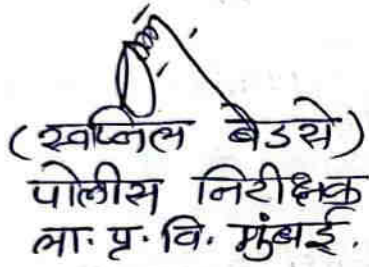 (स्वप्निल बेडसे)
पोलीस निरीक्षक
ला. प्र. वि. मुंबई.